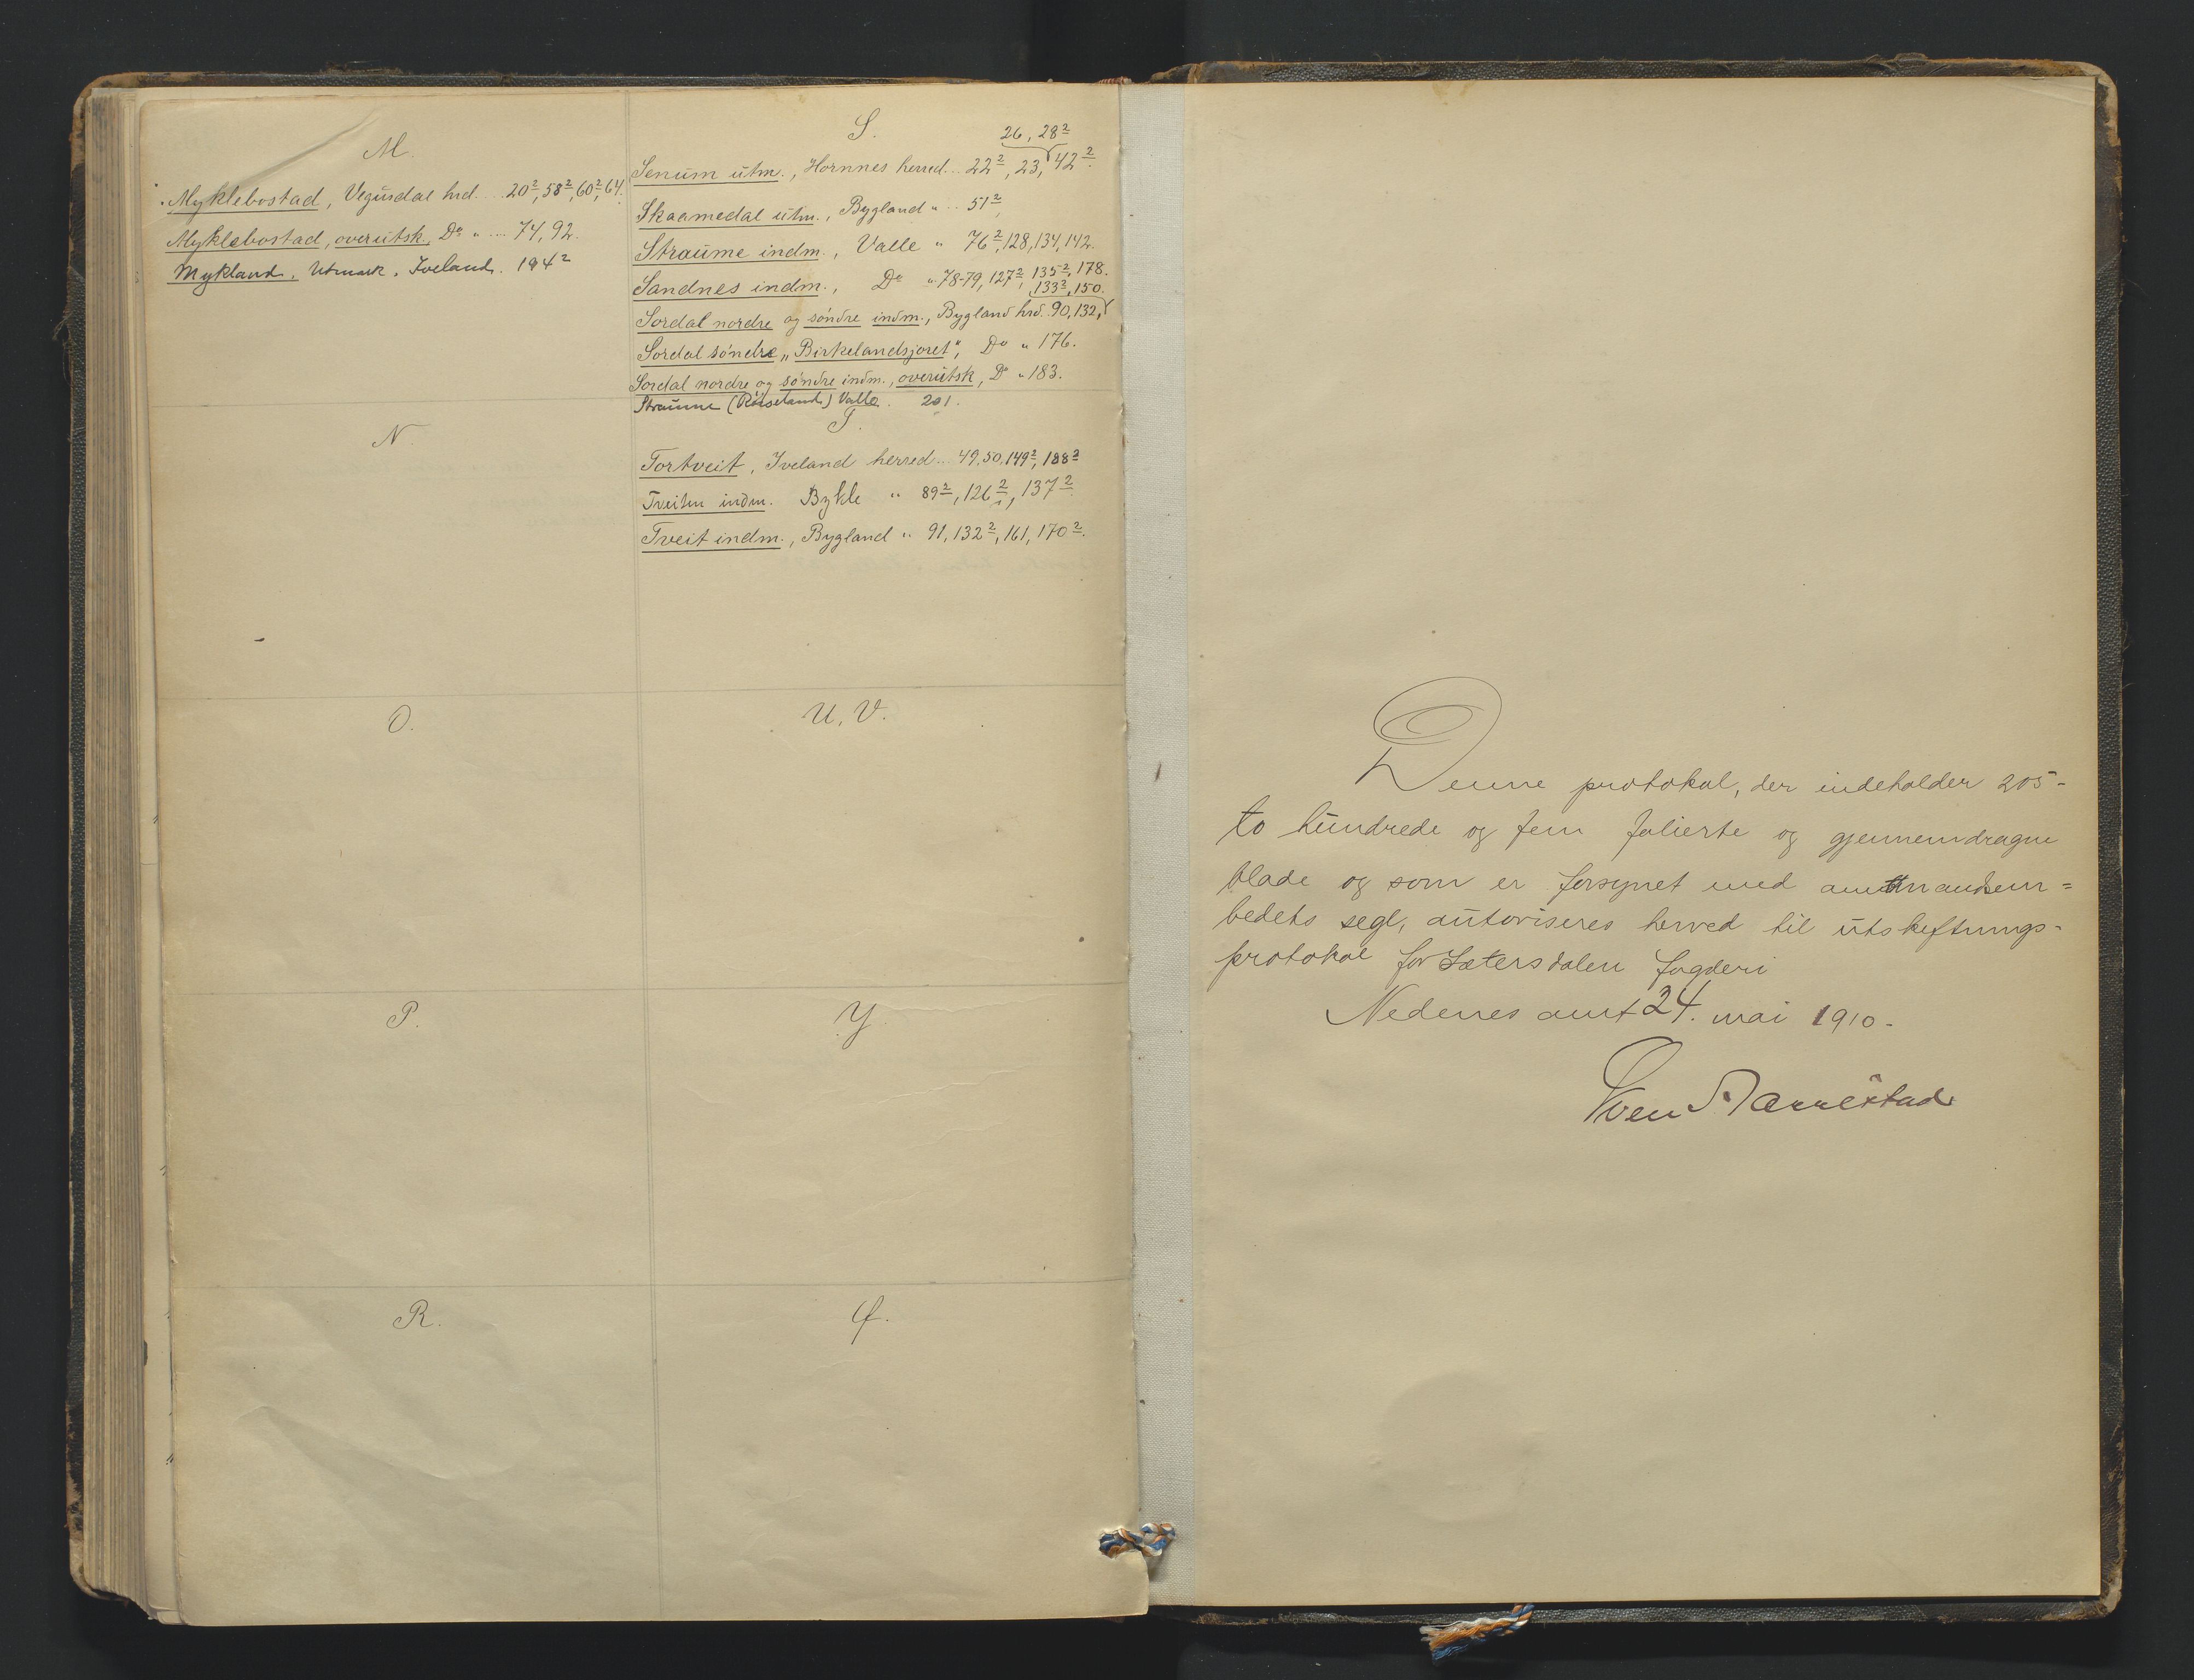 M.
Myklebostad, Vegusdal hrd. ... 20², 58², 60², 64.
Myklebostad, overutsk., Do „ .... 74, 92.
Mykland, Utmark, Iveland. 194²
N.
O.
P.
R.
S.
26, 28²
Senum utm., Hornnes herred... 22², 23, 42².
Skaamedal utm., Bygland „ ... 51²
Straume indm., Valle „ 76², 128, 134, 142.
Sandnes indm., Do „ 78-79, 127², 135², 178.
133², 150.
Sordal nordre og søndre indm., Bygland hrd. 90, 132,
Sordal søndre „Birkelandsjoret", Do „ 176.
Sordal nordre og søndre indm., overutsk, Do „ 183.
Straume (Røiseland) Valle. 201.
T.
Tortveit, Iveland herred... 49, 50, 149², 188²
Tveiten indm. Bykle „ 89², 126², 137²
Tveit indm., Bygland „ 91, 132², 161, 170².
U, V.
Y.
Ø.
Denne protokol, der indeholder 205-
to hundrede og fem folierte og gjennemdragne
blade og som er forsynet med amtmandsem=
bedets segl, autoriseres herved til utskiftnings-
protokol for Sætersdalen fogderi
Nedenes amt 24. mai 1910.
Sven Aarrestad